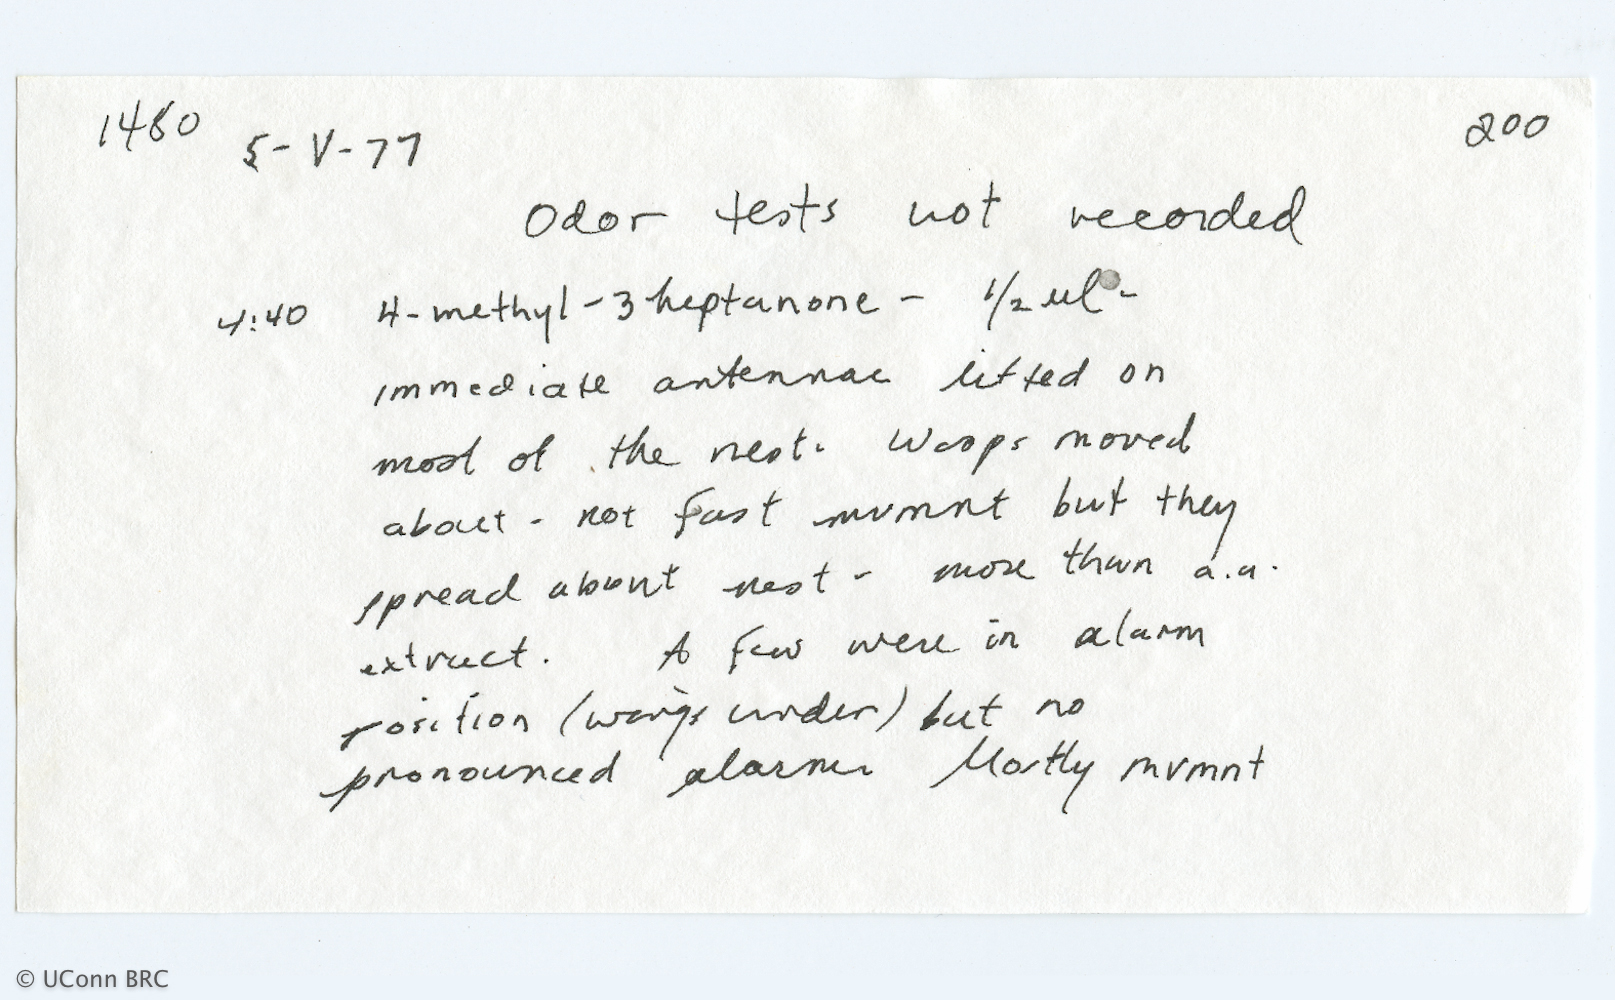 1480 5-V-77 200
Odor tests not recorded
4:40 4-methyl-3 heptanone - 1/2 ul -
immediate antennae lifted on
most of the nest. Wasps moved
about - not fast mvmnt but they
spread about nest - more than a.a.
extract. A few were in alarm
position (wings under) but no
pronounced alarm. Mostly mvmnt
© UConn BRC